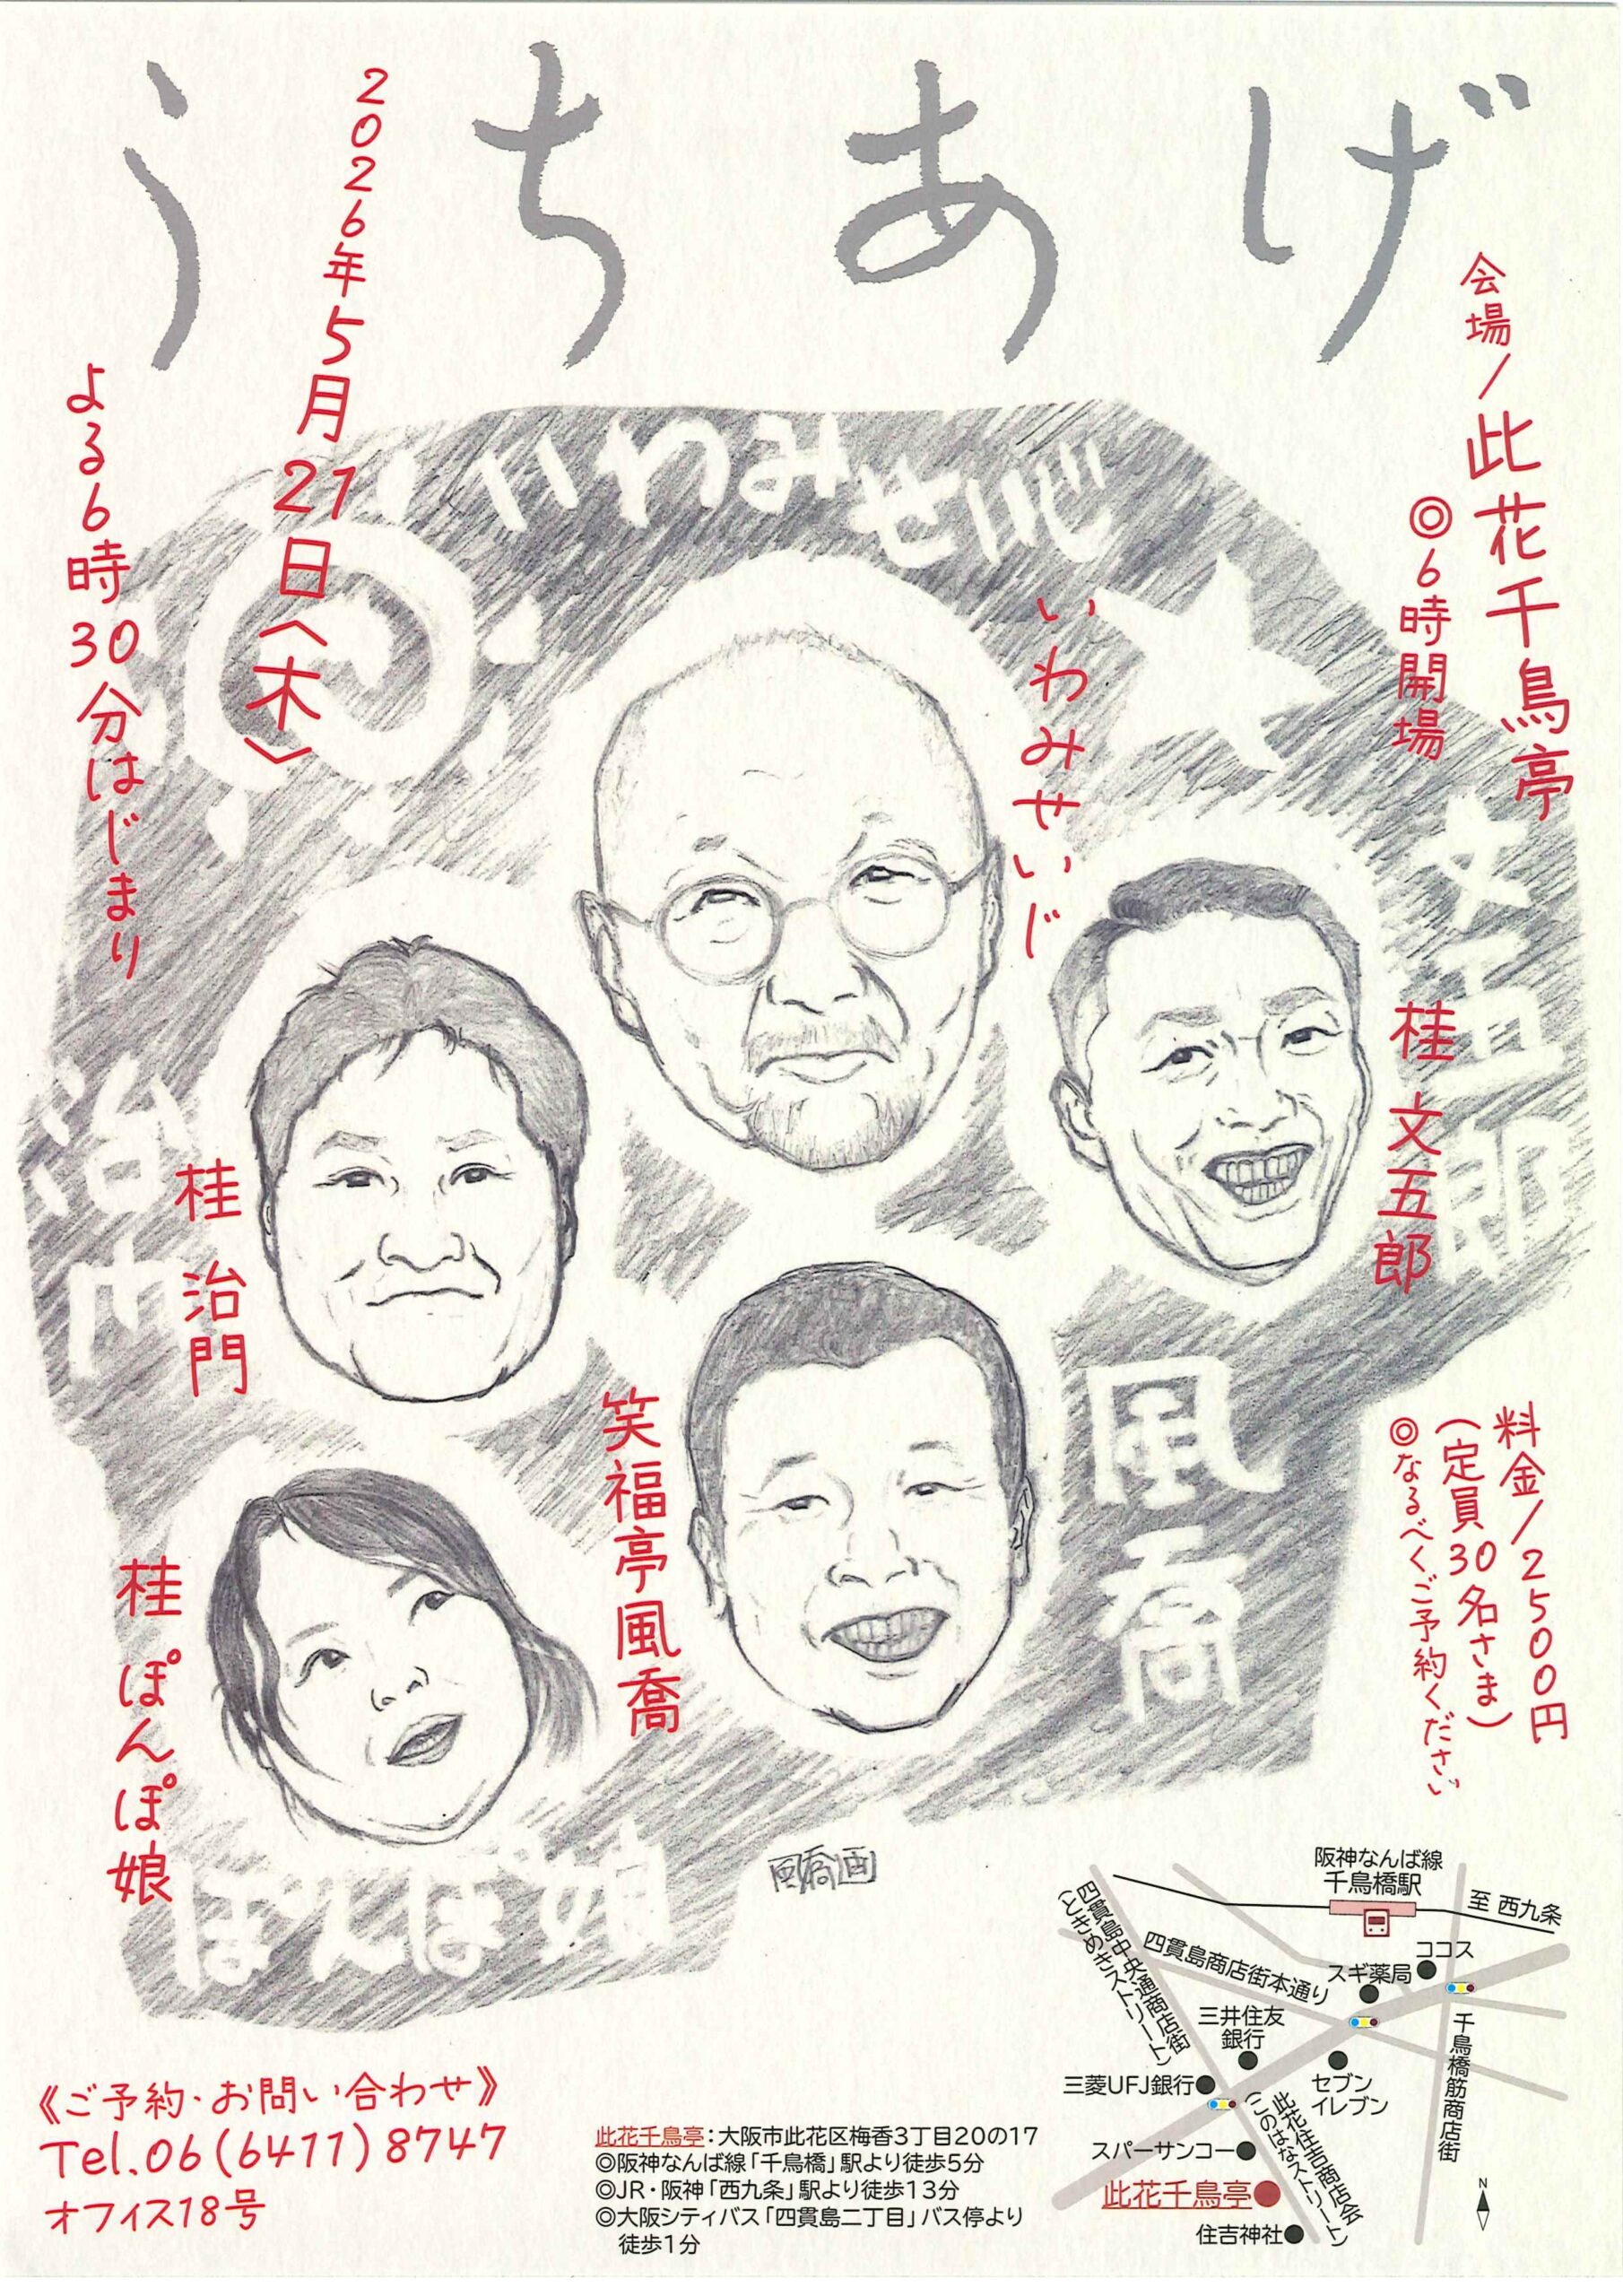 うちあげ
2026年5月21日〈木〉
よる6時30分はじまり
会場/此花千鳥亭
◎6時開場
いわみせいじ
いわみせいじ
文五郎
桂 文五郎
治門
桂 治門
笑福亭風喬
風喬
桂 ぽんぽ娘
ぽんぽ娘
風喬画
料金/2500円
(定員30名さま)
◎なるべくご予約ください
《ご予約・お問い合わせ》
Tel.06(6411)8747
オフィス18号
此花千鳥亭:大阪市此花区梅香3丁目20の17
◎阪神なんば線「千鳥橋」駅より徒歩5分
◎JR・阪神「西九条」駅より徒歩13分
◎大阪シティバス「四貫島二丁目」バス停より
徒歩1分
阪神なんば線
千鳥橋駅
至 西九条
四貫島中央通商店街
(ときめきストリート)
四貫島商店街本通り
ココス
スギ薬局
三井住友
銀行
千鳥橋筋商店街
三菱UFJ銀行
セブン
イレブン
此花住吉商店会
(このはなストリート)
スパーサンコー
此花千鳥亭
住吉神社
N